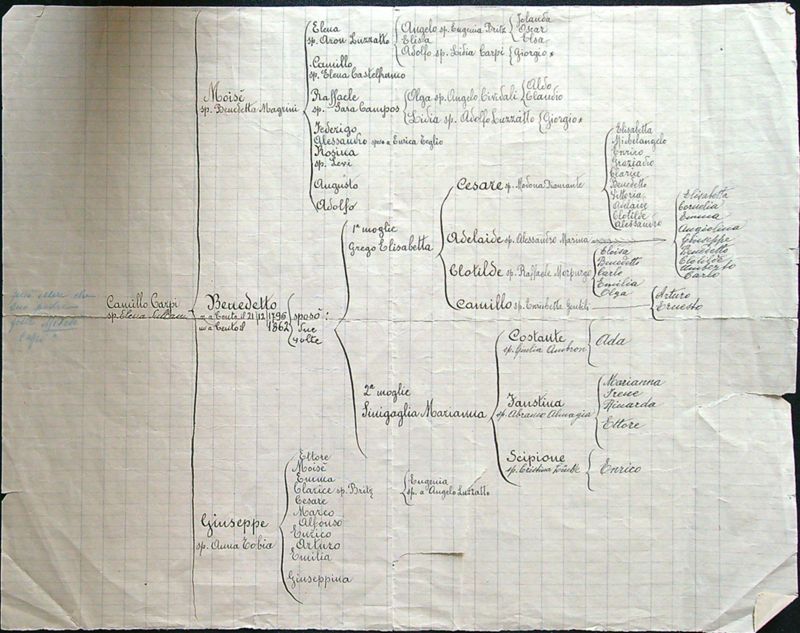 Camillo Carpi
sp. Elena
Moisè
sp. Benedetta Magrini
Elena
sp. Aron Luzzatto
Angelo sp. Eugenia Britz
Jolanda
Oscar
Elsa
Elisa
Adolfo sp. Lidia Carpi
Giorgio *
Camillo
sp. Elena Castelfranco
Raffaele
sp. Sara Campos
Olga sp. Angelo Cividali
Aldo
Claudio
Lidia sp. Adolfo Luzzatto
Giorgio *
Federigo
Alessandro sposo a Enrica Teglio
Rosina
sp. Levi
Augusto
Adolfo
Benedetto
n a Cento il 21/12 1796
m a Cento il 1862
sposò:
due
volte
1ª moglie
Grego Elisabetta
Cesare sp. Modona Diamante
Elisabetta
Michelangelo
Enrico
Graziadio
Clarice
Benedetto
Vittoria
Clotilde
Alessandro
Adelaide sp. Alessandro Marina
Elisabetta
Cornelia
Emma
Angiolina
Giuseppe
Benedetto
Clotilde
Umberto
Carlo
Clotilde sp. Raffaele Morpurgo
Eloisa
Benedetto
Carlo
Emilia
Olga
Camillo sp. Enrichetta
Arturo
Ernesto
2ª moglie
Sinigaglia Marianna
Costante
sp. Giulia Ambron
Ada
Faustina
sp. Abramo Almagià
Marianna
Irene
Ricarda
Ettore
Scipione
sp. Cristina
Enrico
Giuseppe
sp. Anna Tobia
Ettore
Moisè
Emma
Clarice sp. Britz
Eugenia
sp. a Angelo Luzzatto
Cesare
Marco
Alfonso
Enrico
Arturo
Emilia
Giuseppina